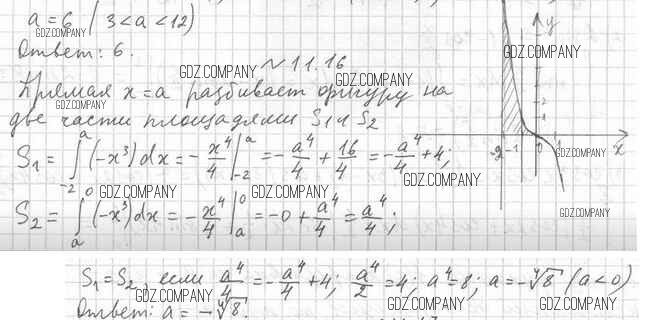 a = 6 (3 < a < 12)
GDZ.COMPANY
Ответ: 6.
GDZ.COMPANY
№ 11.16
GDZ.COMPANY
GDZ.COMPANY
Прямая x = a разбивает фигуру на
GDZ.COMPANY
две части площадями S₁ и S₂
S₁ = ∫₋₂ᵃ (-x³)dx = -x⁴/4 |₋₂ᵃ = -a⁴/4 + 16/4 = -a⁴/4 + 4;
GDZ.COMPANY
GDZ.COMPANY
GDZ.COMPANY
S₂ = ∫ₐ⁰ (-x³)dx = -x⁴/4 |ₐ⁰ = -0 + a⁴/4 = a⁴/4;
y
GDZ.COMPANY
4
2
-2 -1 0 x
GDZ.COMPANY
GDZ.COMPANY
S₁ = S₂, если a⁴/4 = -a⁴/4 + 4; a⁴/2 = 4; a⁴ = 8; a = -⁴√8 (a < 0)
GDZ.COMPANY
GDZ.COMPANY
GDZ.COMPANY
Ответ: a = -⁴√8.